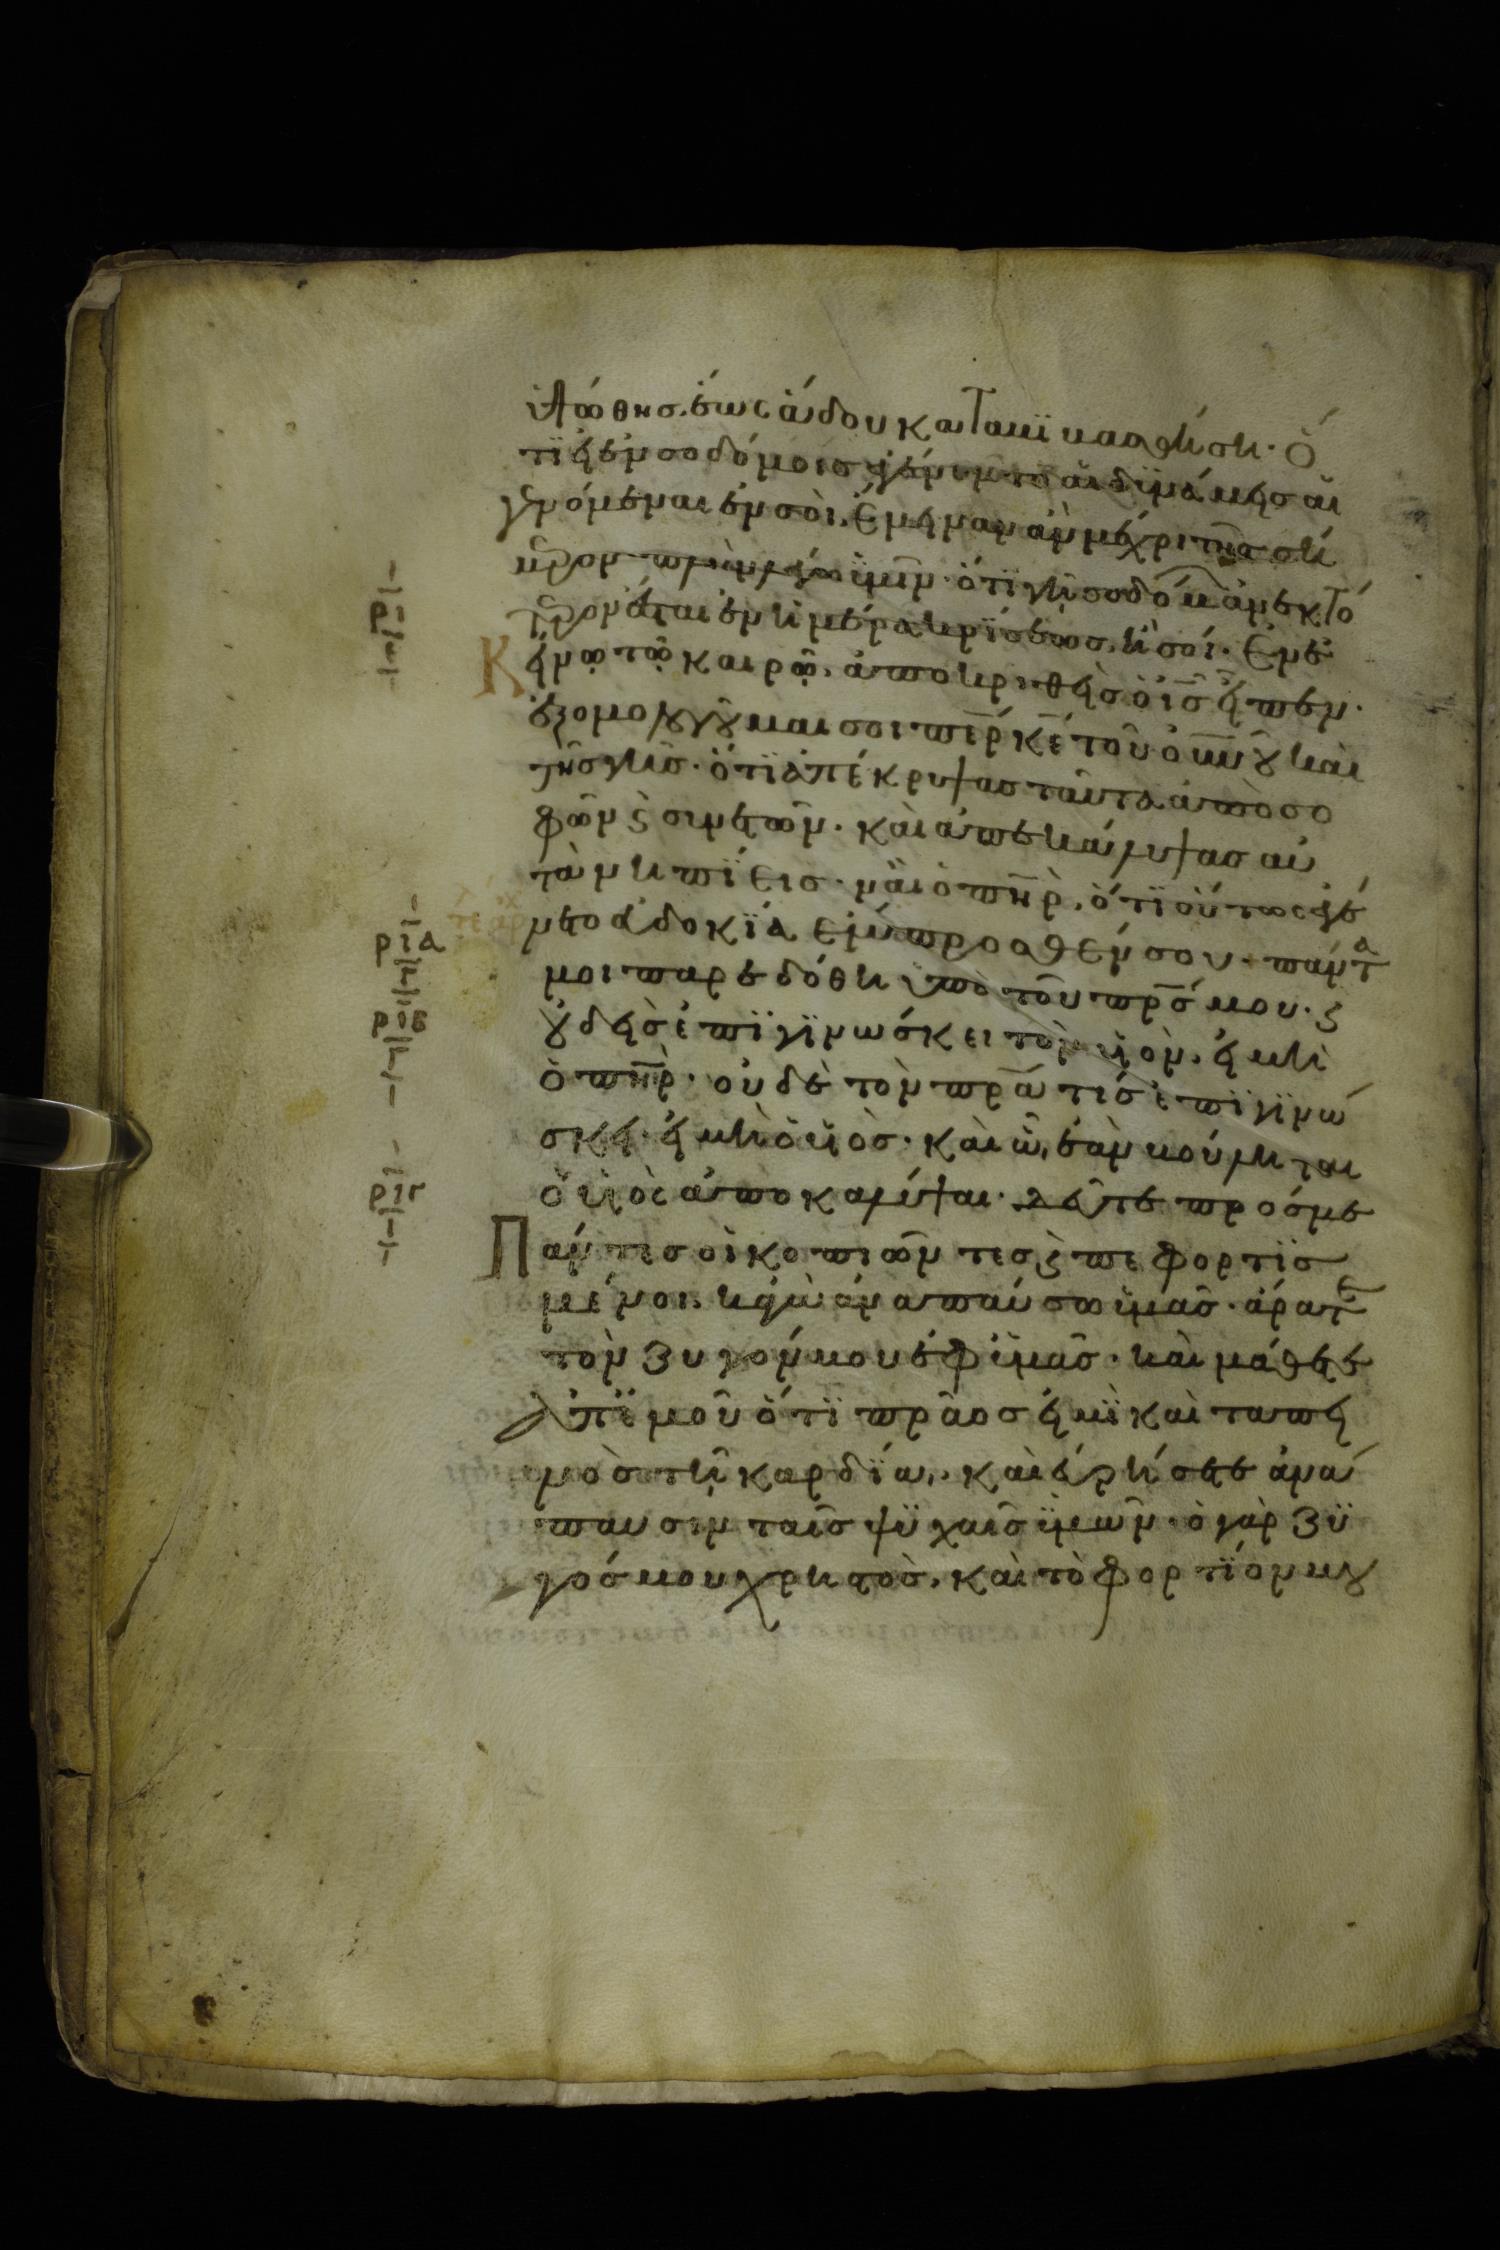 ὑψώθησ. ἕως ἅδου καταβϊβασθήση. ὅ
τϊ εἰ ἐν σοδόμοισ ἐγένοντο αἱ δϊνάμεισ αἱ
γενόμεναι ἐν σοὶ. ἔμειναν ἂν μέχρι τῆσ σή
μερον. πλὴν λέγω ὑμῖν. ὅτϊ γῆ σοδόμων ἀνεκτό
τερον ἔσται ἐν ἡμέρα κρίσεωσ, ἢ σοί. Ἐν ἐ
Κείνω τῶ καιρῶ. ἀποκριθεὶσ ὁ ι̅σ̅ εἶπεν.
ἐξομολογοῦμαι σοι π̅ε̅ρ̅ κ̅ε̅ τοῦ ο̅υ̅ν̅ου καὶ
τῆσ γῆσ. ὅτϊ ἀπέκρυψασ ταῦτα ἀπὸ σο
φῶν ϗ σινετῶν. καὶ ἀπεκάλυψασ αὐ
τὰ νηπϊεισ. ναὶ ὁ π̅η̅ρ̅, ὅτϊ οὕτως ἐγέ
νετο εὐδοκϊα ἔμπροσθεν σου. πάντα
μοι παρεδόθη ὑπὸ τοῦ π̅ρ̅σ̅ μου. ϗ
οὐδεὶσ ἐπϊγϊνώσκει τὸν υἱὸν. εἰ μὴ
ὁ π̅η̅ρ̅. οὐδὲ τὸν π̅ρ̅α̅ τίσ ἐπϊγϊνώ
σκει. εἰ μὴ ὁ υἱὸσ. καὶ ὧ, ἐὰν βούληται
ὁ υἱὸς ἀποκαλύψαι. δεῦτε πρόσ με
Πάντεσ οἱ κοπιῶντεσ ϗ πεφορτϊσ
μένοι. κἀγὼ ἀναπαύσω ὑμᾶσ. ἄρατε
τὸν ζυγόν μου ἐφ ὑμᾶσ. καὶ μάθετε
ἀπ̈ ἐμοῦ ὅτϊ πρᾶοσ εἰμϊ καὶ ταπει
νὸσ τῆ καρδϊα. καὶ εὑρήσετε ἀνά
παυσιν ταῖσ ψϋχαῖσ ὑμῶν. ὁ γὰρ ζϋ
γόσ μου χρηστὸσ, καὶ τὸ φορτϊον μου
ρι
ρια
ριβ
ριγ